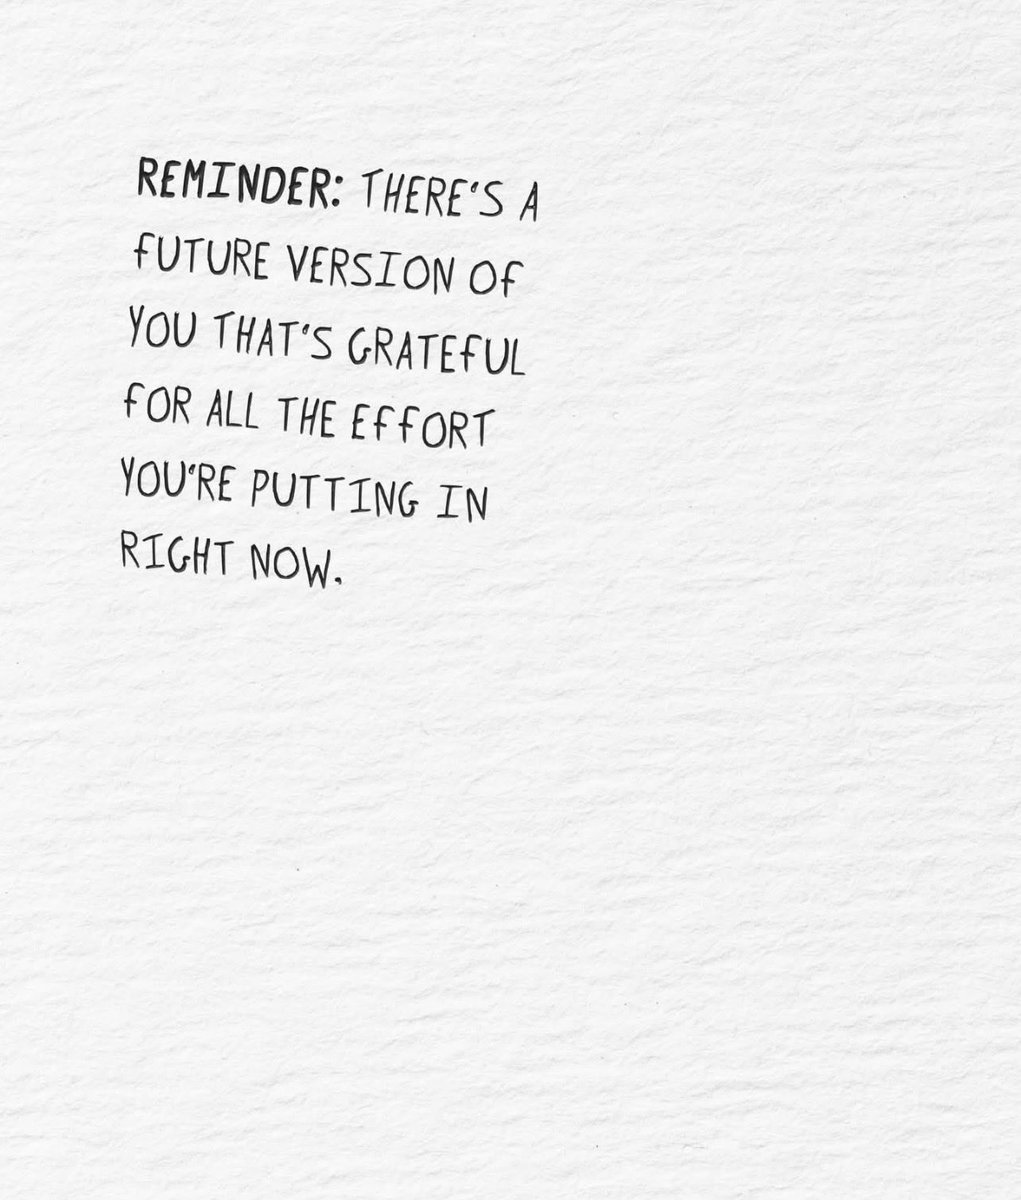 REMINDER: THERE'S A
FUTURE VERSION OF
YOU THAT'S GRATEFUL
FOR ALL THE EFFORT
YOU'RE PUTTING IN
RIGHT NOW.